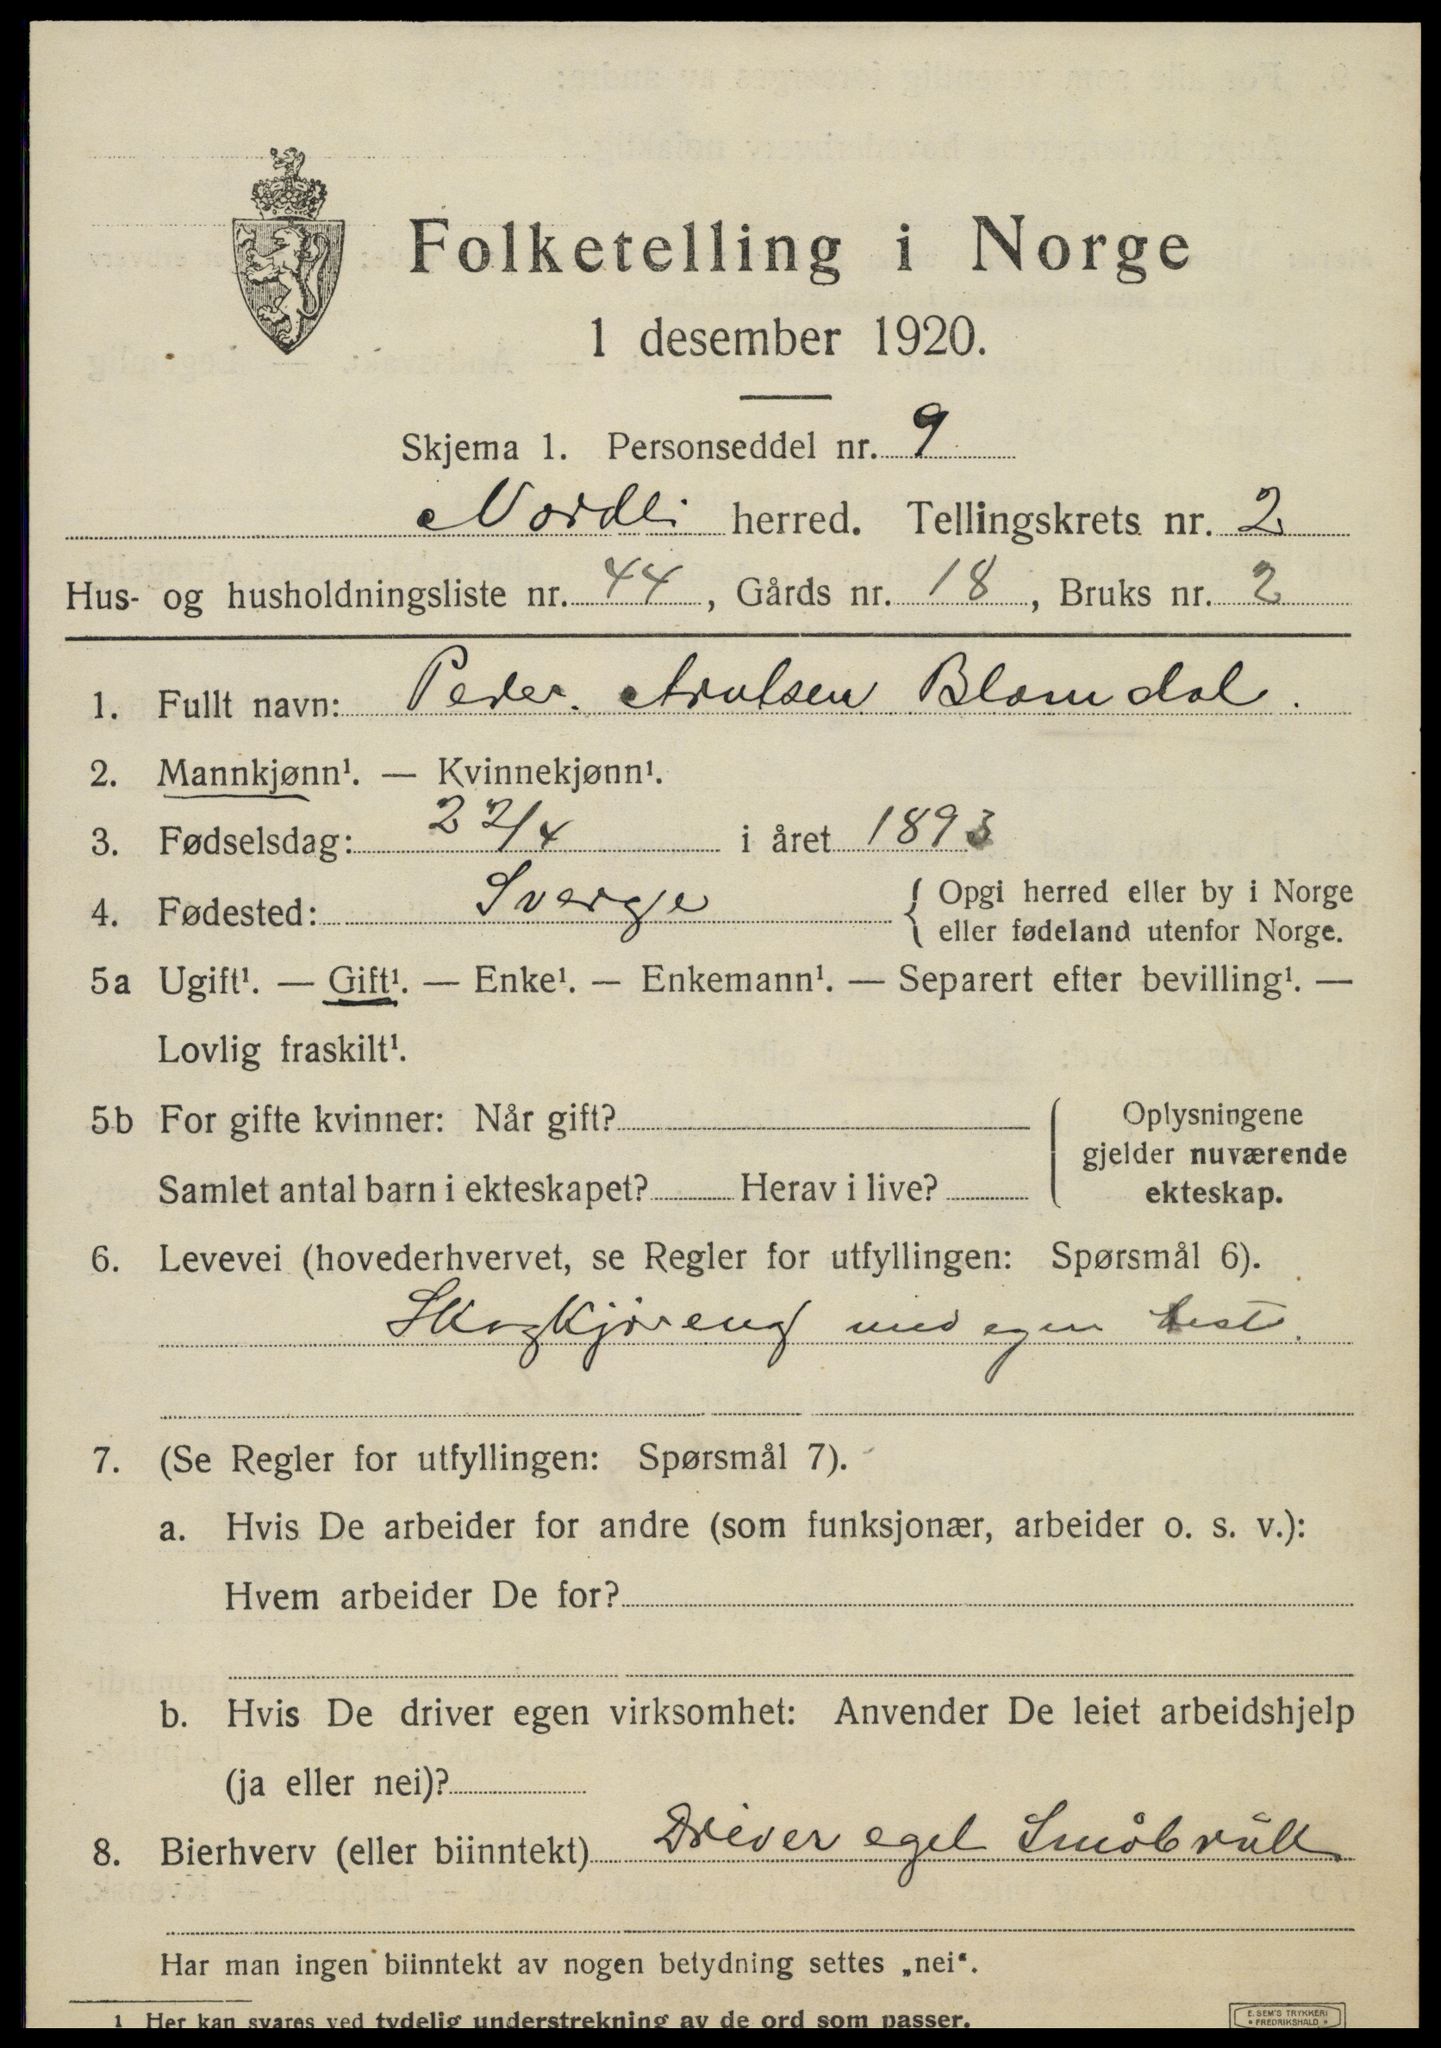 Folketelling i Norge
1 desember 1920.
Skjema 1. Personseddel nr. 9
Nordli herred. Tellingskrets nr. 2
Hus- og husholdningsliste nr. 44, Gårds nr. 18, Bruks nr. 2
1. Fullt navn: Peder. Arntsen Blomdal.
2. Mannkjønn¹. — Kvinnekjønn¹.
3. Fødselsdag: 22/4 i året 1893
4. Fødested: Sverge { Opgi herred eller by i Norge
eller fødeland utenfor Norge.
5a Ugift¹. — Gift¹. — Enke¹. — Enkemann¹. — Separert efter bevilling¹. —
Lovlig fraskilt¹.
5b For gifte kvinner: Når gift? Oplysningene
gjelder nuværende
Samlet antal barn i ekteskapet? Herav i live? ekteskap.
6. Levevei (hovederhvervet, se Regler for utfyllingen: Spørsmål 6).
Skogkjøreng med egen hest.
7. (Se Regler for utfyllingen: Spørsmål 7).
a. Hvis De arbeider for andre (som funksjonær, arbeider o. s. v.):
Hvem arbeider De for?
b. Hvis De driver egen virksomhet: Anvender De leiet arbeidshjelp
(ja eller nei)?
8. Bierhverv (eller biinntekt) Driver eget Småbrŭk
Har man ingen biinntekt av nogen betydning settes „nei“.
¹ Her kan svares ved tydelig understrekning av de ord som passer.
E. SEM'S TRYKKERI
• FREDRIKSHALD •